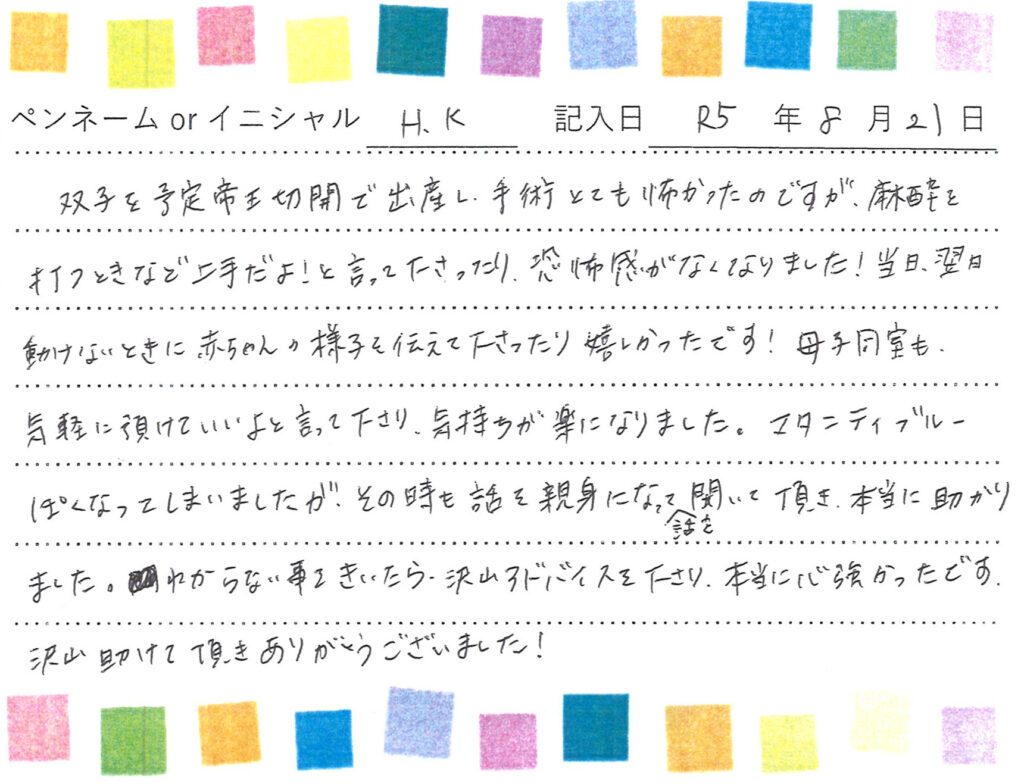 ペンネーム or イニシャル H.K 記入日 R5 年 8 月 21 日
双子を予定帝王切開で出産し、手術とても怖かったのですが、麻酔を
打つときなど上手だよ!と言って下さったり、恐怖感がなくなりました!当日、翌日
動けないときに赤ちゃんの様子を伝えて下さったり嬉しかったです!母子同室も、
気軽に預けていいよと言って下さり、気持ちが楽になりました。マタニティブルー
ぽくなってしまいましたが、その時も話を親身になって聞いて頂き、本当に助かり
話を
ました。わからない事をきいたら、沢山アドバイスを下さり、本当に心強かったです。
沢山助けて頂きありがとうございました!